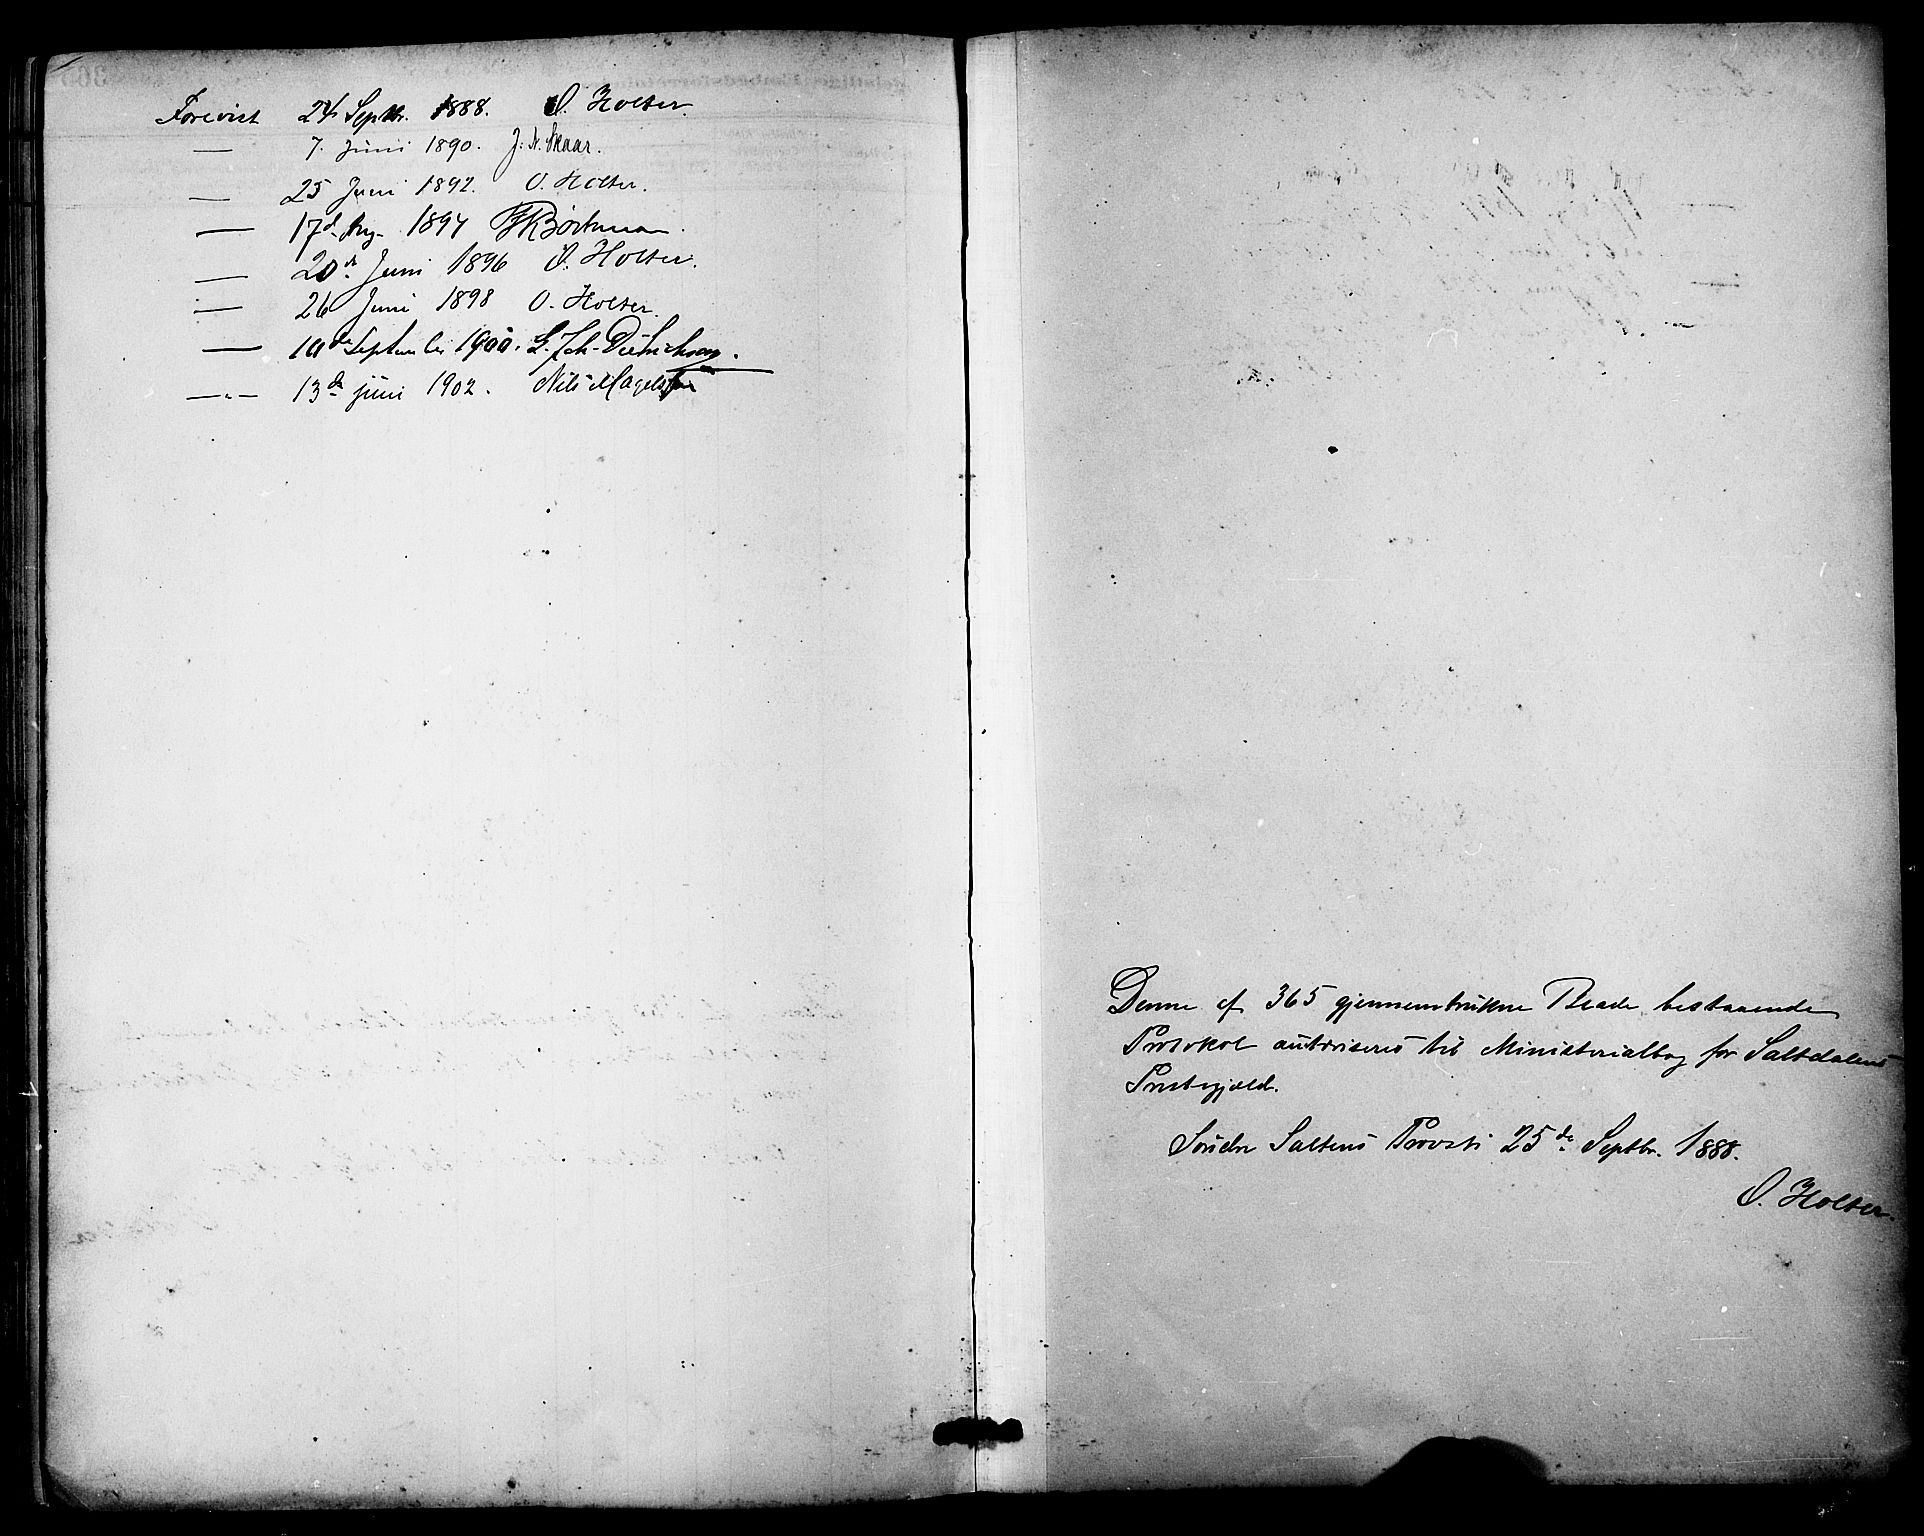 Forevist 24 Septbr. 1888. O. Holter.
— 7. Juni 1890. J. N. Skaar.
— 25 Juni 1892. O. Holter.
— 17d Aug. 1894
— 20de Juni 1896 O. Holter.
— 26 Juni 1898 O. Holter.
— September 1900. Dietrichson.
—"— 13de juni 1902. Nils
Denne af 365 gjennemtrukne Blade bestaaende
Protokol autoriseres til Ministerialbog for Saltdalens
Præstegjæld.
Søndre Saltens Provsti 25de Septbr. 1888.
O. Holter.